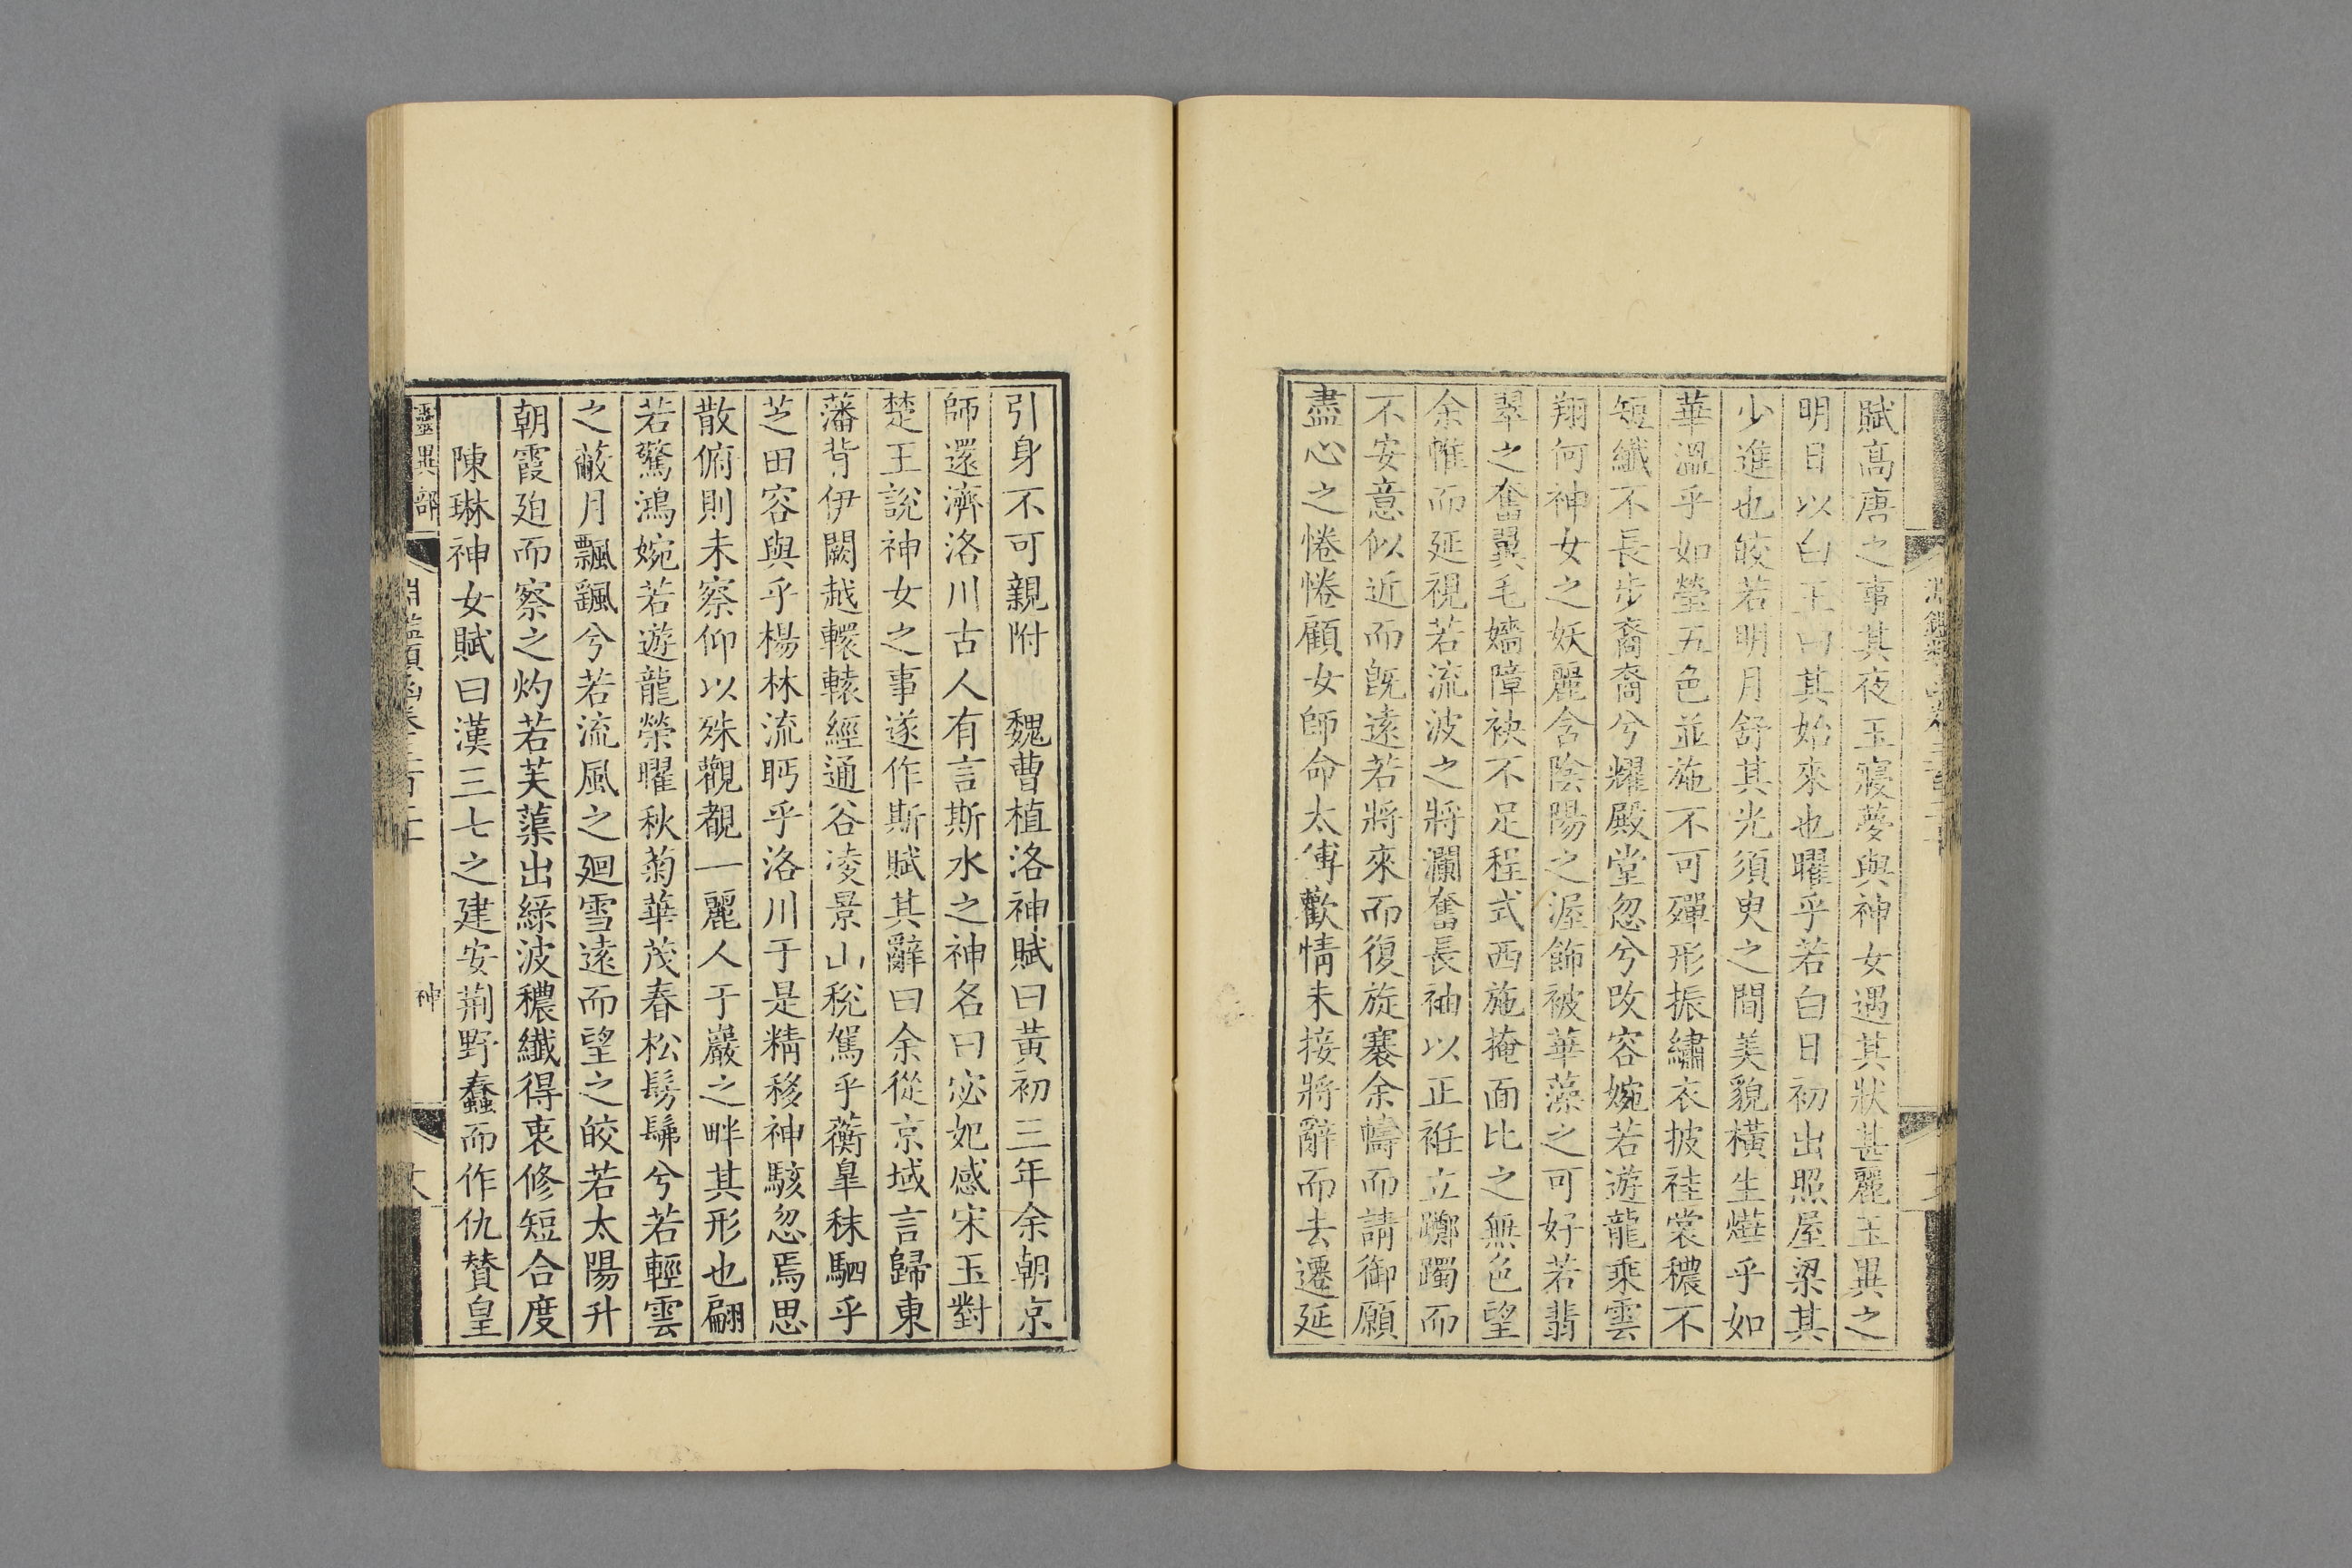 賦高唐之事其夜玉寢夢與神女遇其狀甚麗玉異之
明日以白王曰其始來也曜乎若白日初出照屋梁其
少進也皎若明月舒其光須臾之間美貌橫生燁乎如
華溫乎如瑩五色並施不可殫形振繡衣披袿裳穠不
短纖不長步裔裔兮耀殿堂忽兮改容婉若遊龍乘雲
翔何神女之妖麗含陰陽之渥飾被華藻之可好若翡
翠之奮翼毛嬙障袂不足程式西施掩面比之無色望
余帷而延視若流波之將瀾奮長袖以正衽立躑躅而
不安意似近而旣遠若將來而復旋褰余幬而請御願
盡心之惓惓顧女師命太傅歡情未接將辭而去遷延
引身不可親附　魏曹植洛神賦曰黃初三年余朝京
師還濟洛川古人有言斯水之神名曰宓妃感宋玉對
楚王說神女之事遂作斯賦其辭曰余從京域言歸東
藩背伊闕越轘轅經通谷凌景山稅駕乎蘅皐秣駟乎
芝田容與乎楊林流眄乎洛川于是精移神駭忽焉思
散俯則未察仰以殊觀覩一麗人于巖之畔其形也翩
若驚鴻婉若遊龍榮曜秋菊華茂春松髣髴兮若輕雲
之蔽月飄颻兮若流風之廻雪遠而望之皎若太陽升
朝霞廹而察之灼若芙蕖出綠波穠纖得衷修短合度
陳琳神女賦曰漢三七之建安荆野蠢而作仇贊皇
靈異部
神